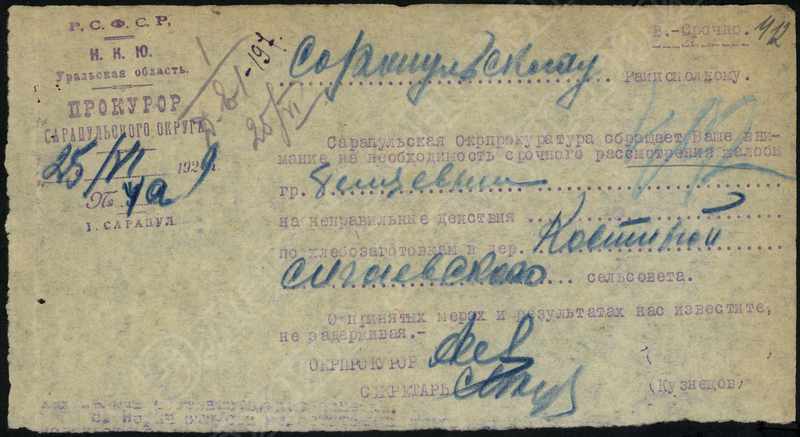 Р.С.Ф.С.Р.
Н.К.Ю.
Уральская область.
ПРОКУРОР
САРАПУЛЬСКОГО ОКРУГА
25/VI 1929
№ 4а
г. САРАПУЛ
25/VI
В.-Срочно.
Сарапульскому Райисполкому.
Сарапульская Окрпрокуратура обращает Ваше вни-
мание на необходимость срочного рассмотрения жалобы
гр.
на неправильные действия
по хлебозаготовкам в дер. Костиной
Сигаевского сельсовета.
О принятых мерах и результатах нас известите,
не задерживая.-
ОКРПРОКУРОР
СЕКРЕТАРЬ (Кузнецов)